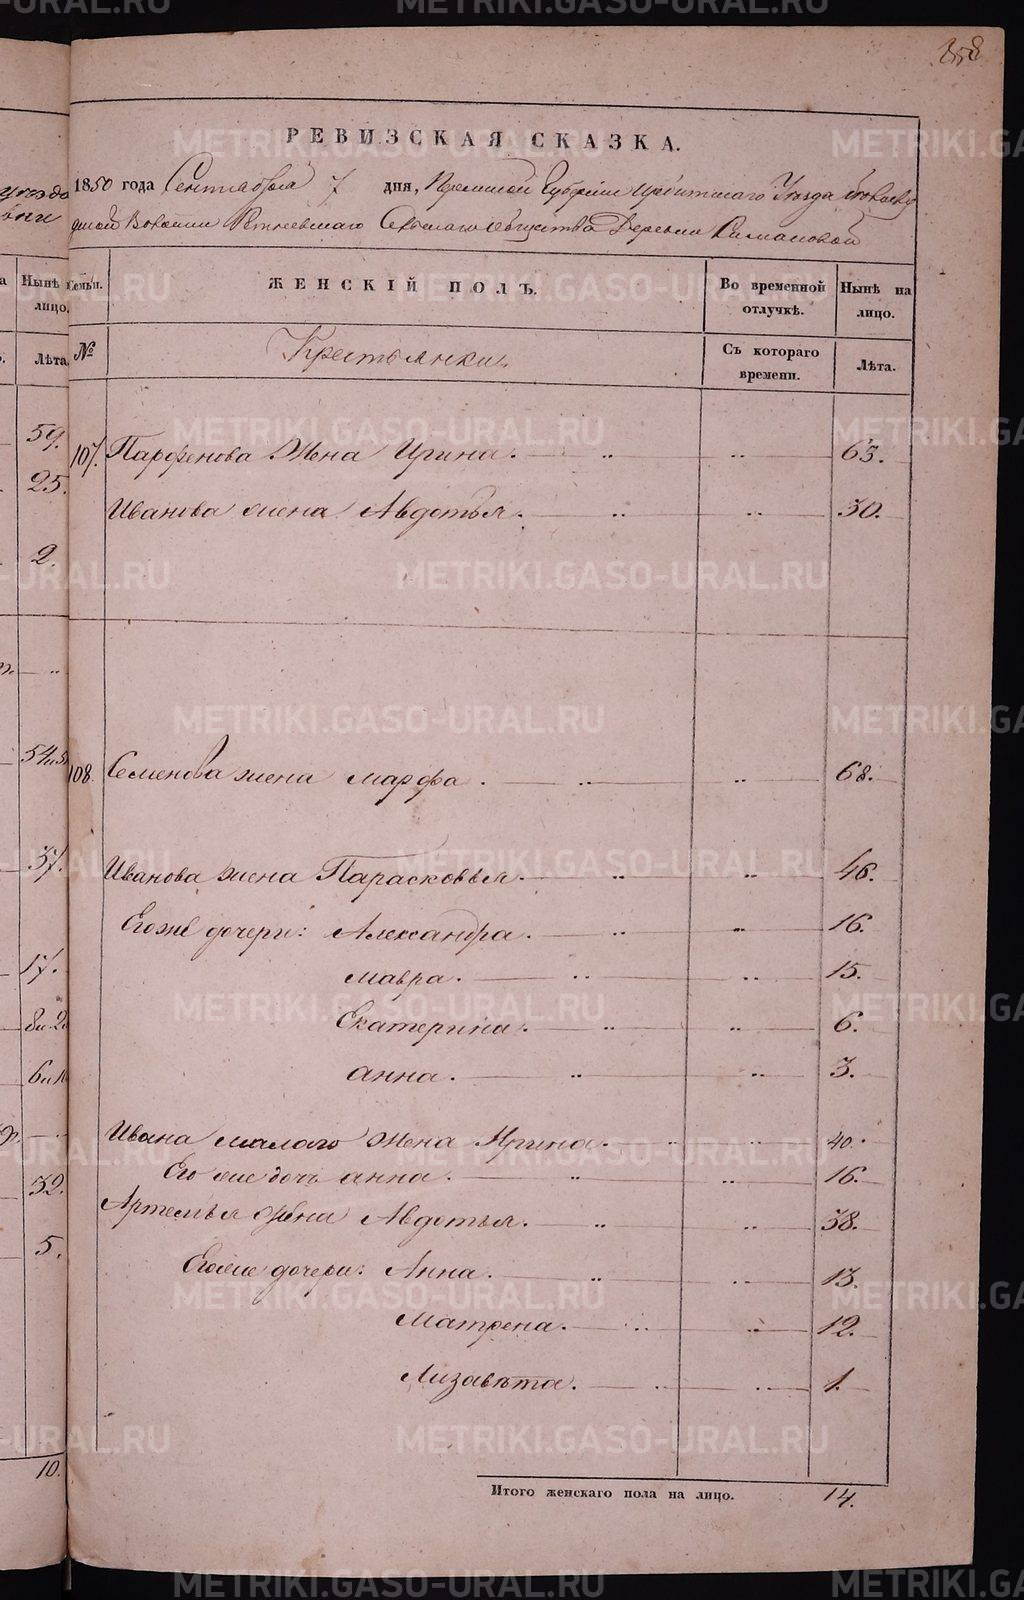 358
РЕВИЗСКАЯ СКАЗКА.
1850 года Сентября 7 дня, Пермской Губернии Ирбитского Уезда
Волости Сельского общества Деревни
Семьи. ЖЕНСКІЙ ПОЛЪ. Во временной отлучкѣ. Нынѣ на лицо.
№ Крестьянки Съ котораго времени. Лѣта.
107. Парфенова Жена Ирина. 63.
Иванова жена Авдотья. 30.
108. Семенова жена марфа. 68.
Иванова жена Парасковья. 46.
Егоже дочери: Александра. 16.
мавра. 15.
Екатерина. 6.
анна. 3.
Ивана малого жена Ирина. 40.
Его же дочь анна. 16.
Артемья жена Авдотья. 38.
Егоже дочери: Анна. 13.
Матрена. 12.
Лизавѣта. 1.
Итого женскаго пола на лицо. 14.
Нынѣ лицо.
Лѣта.
59.
25.
2.
37.
17.
32.
5.
10.
METRIKI.GASO-URAL.RU